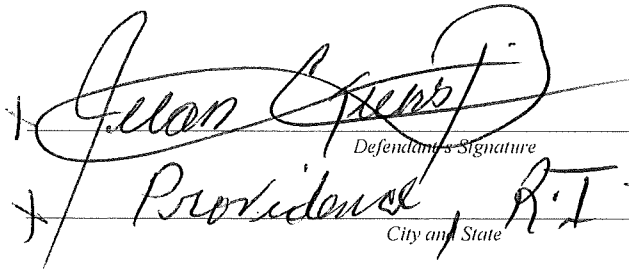 Juan
Defendant's Signature
Providence, R.I.
City and State